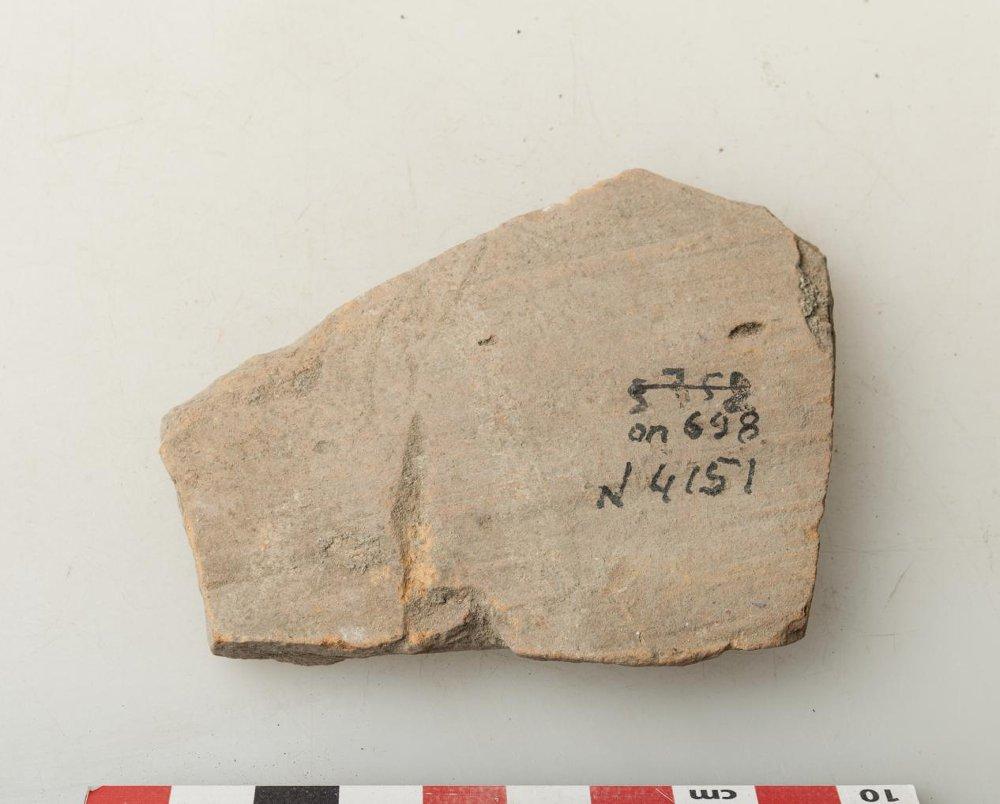 5758
on 698
N 4151
cm
10